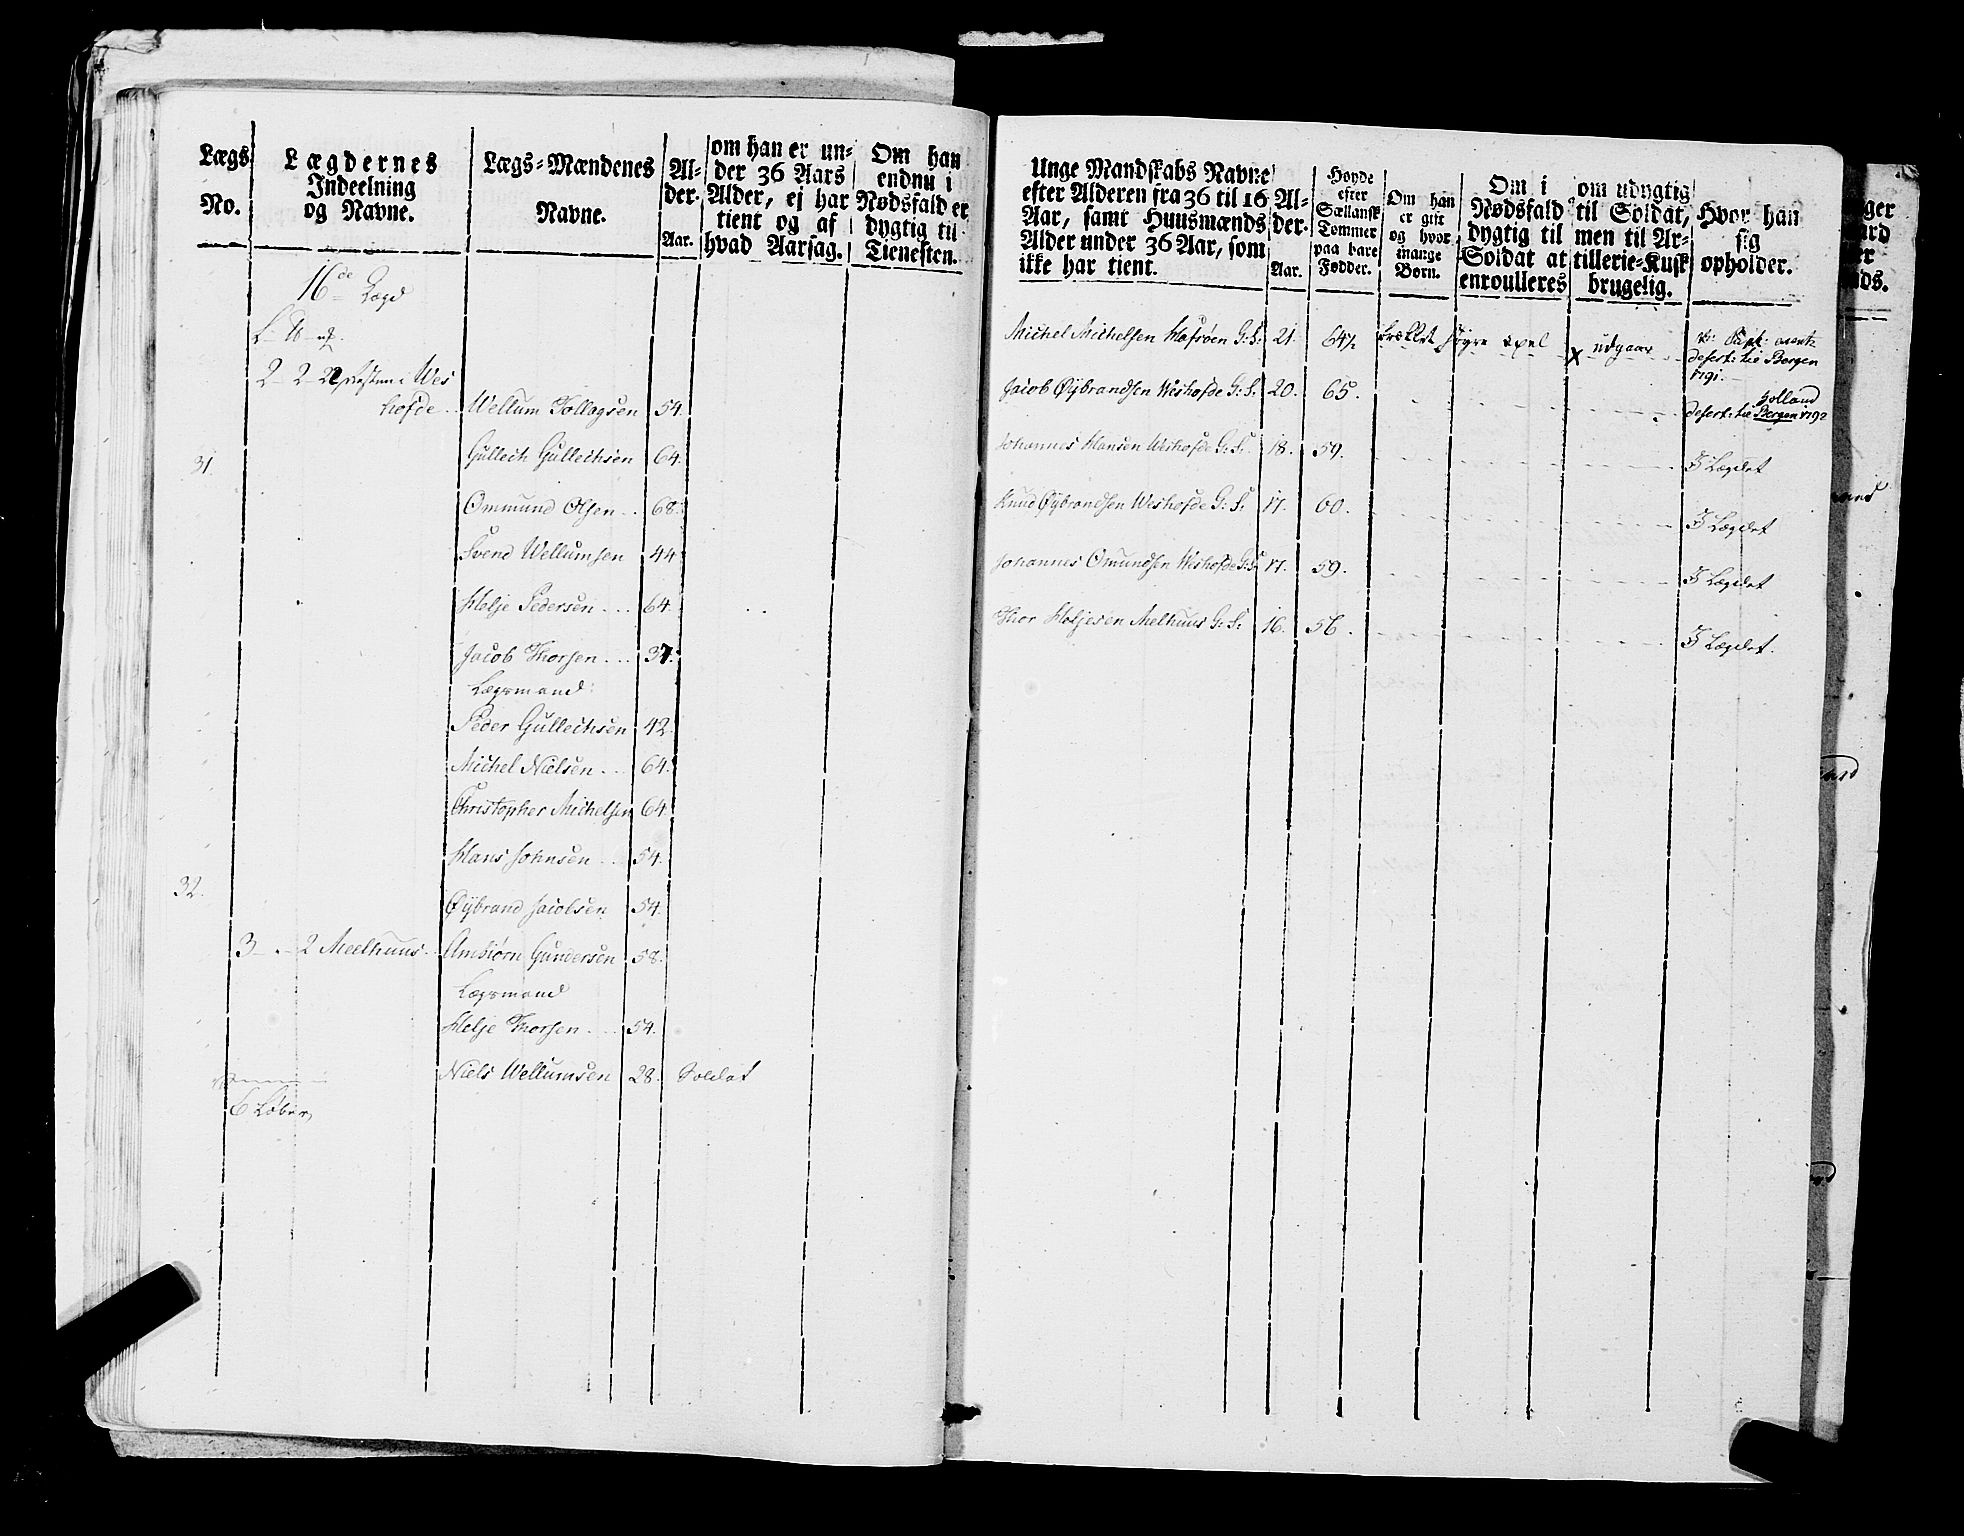 Lægs No.
Lægdernes Indeelning og Navne.
Lægs-Mændenes Navne.
Alder. Aar.
om han er under 36 Aars Alder, ej har tient og af hvad Aarsag.
Om han endnu i Nødsfald er dygtig til Tienesten.
16de Lægd
L W
2 - 2 - Wes
hofde .. Wellum Tollagsen 54.
31. Gullech Gullechsen 64.
Ommund Olsen .. 68.
Svend Wellumsen 44
Helje Pedersen ... 64.
Jacob Thorsen ... 37.
Lægsmand:
Peder Gullechsen 42.
Michel Nielsen ... 64.
Christopher Michelsen 64.
Hans Johnsen ... 54.
32. Øybrand Jacobsen 54.
3 - . - 2 Meelhuus .. Ambiørn Gundersen 58.
Lægsmand
Helje Thorsen ... 54.
Niels Wellumsen 28. Soldat
6 Løber
Unge Mandskabs Navne efter Alderen fra 36 til 16 Aar, samt Huusmænds Alder under 36 Aar, som ikke har tient.
Alder. Aar.
Høyde efter Sællansk Tommer paa bare Fødder.
Om han er gift og hvor mange Børn.
Om i Nødsfald dygtig til Soldat at enroulleres
om udygtig til Soldat, men til Artillerie-Kusk brugelig.
Hvor han sig opholder.
Michel Michelsen G: S. 21. 64½ brækket høyre x udgaar
desert: til Bergen
1791.
Jacob Øybrandsen Weshofde G: S. 20. 65. Holland
desert: til Bergen 1792
Johannes Hansen Weshofde G: S. 18. 59. I Lægdet
Knud Øybrandsen Weshofde G: S. 17. 60. I Lægdet
Johannes Omundsen Weshofde G: S. 17. 59. I Lægdet
Thor Heljesen Melhuus G: S. 16. 56. I Lægdet.